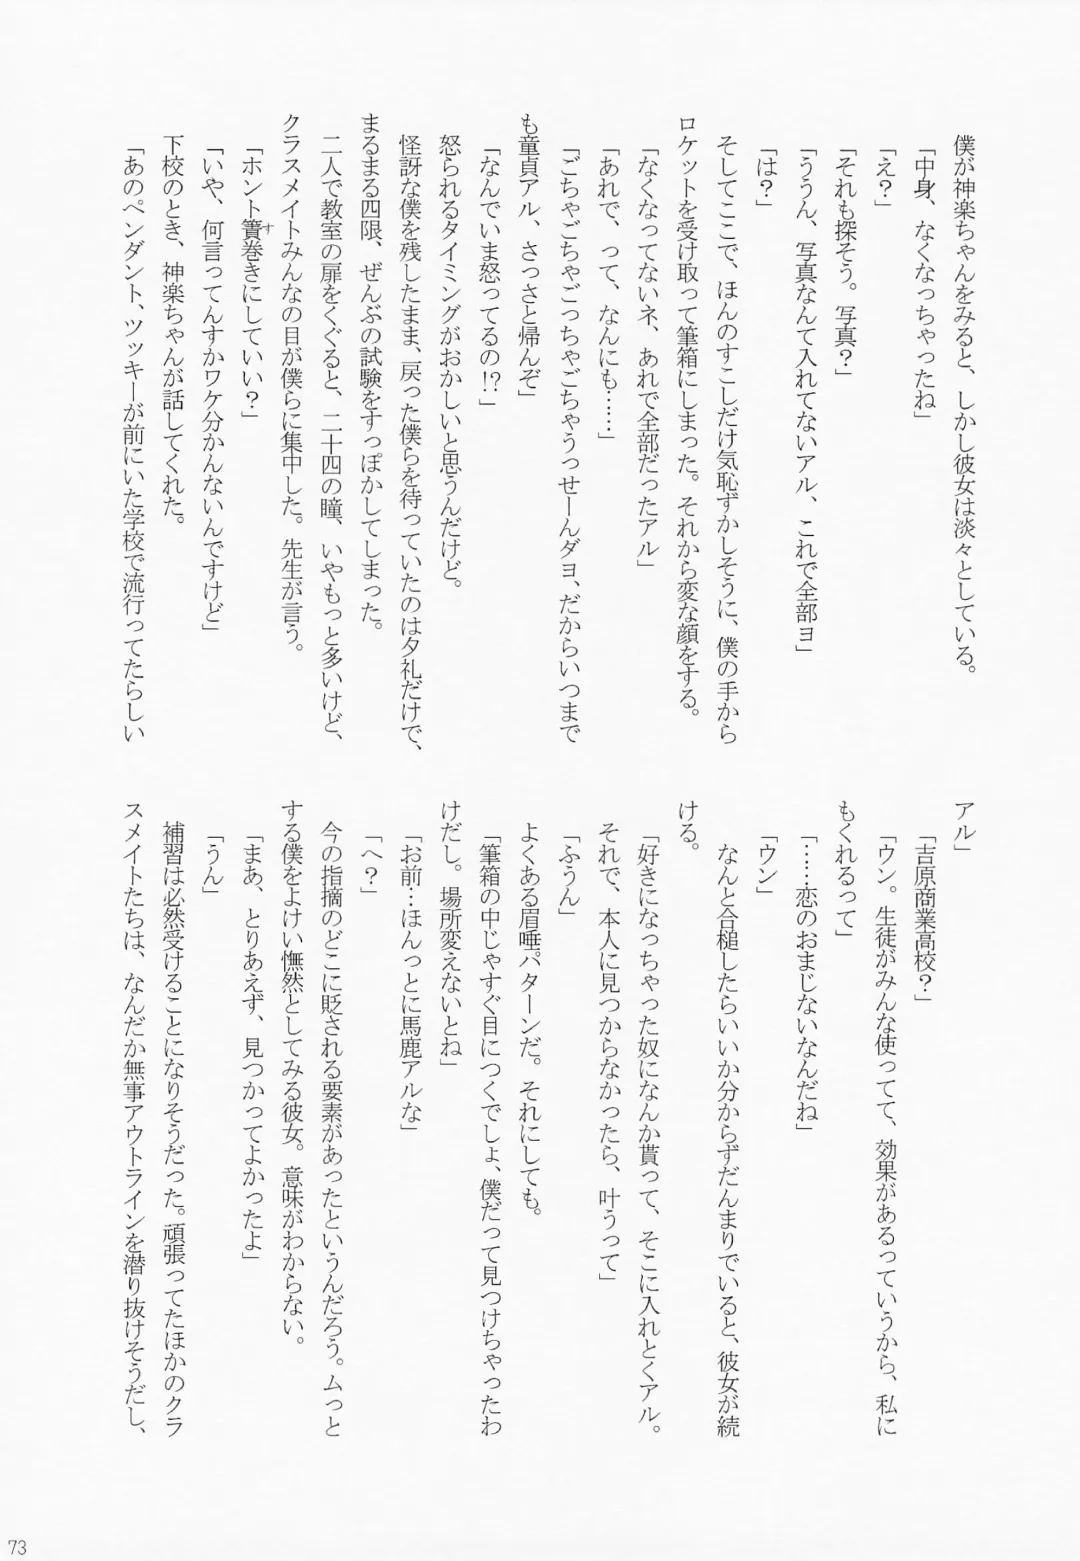 僕が神楽ちゃんをみると、しかし彼女は淡々としている。
「中身、なくなっちゃったね」
「え？」
「それも探そう。写真？」
「ううん、写真なんて入れてないアル、これで全部ヨ」
「は？」
そしてここで、ほんのすこしだけ気恥ずかしそうに、僕の手から
ロケットを受け取って筆箱にしまった。それから変な顔をする。
「なくなってないネ、あれで全部だったアル」
「あれで、って、なんにも……」
「ごちゃごちゃごっちゃごちゃうっせーんダヨ、だからいつまで
も童貞アル、さっさと帰んぞ」
「なんでいま怒ってるの!?」
怒られるタイミングがおかしいと思うんだけど。
怪訝な僕を残したまま、戻った僕らを待っていたのは夕礼だけで、
まるまる四限、ぜんぶの試験をすっぽかしてしまった。
二人で教室の扉をくぐると、二十四の瞳、いやもっと多いけど、
クラスメイトみんなの目が僕らに集中した。先生が言う。
「ホント簀巻きにしていい？」
す
「いや、何言ってんすかワケ分かんないんですけど」
下校のとき、神楽ちゃんが話してくれた。
「あのペンダント、ツッキーが前にいた学校で流行ってたらしい
アル」
「吉原商業高校？」
「ウン。生徒がみんな使ってて、効果があるっていうから、私に
もくれるって」
「……恋のおまじないなんだね」
「ウン」
なんと合槌したらいいか分からずだんまりでいると、彼女が続
ける。
「好きになっちゃった奴になんか貰って、そこに入れとくアル。
それで、本人に見つからなかったら、叶うって」
「ふうん」
よくある眉唾パターンだ。それにしても。
「筆箱の中じゃすぐ目につくでしょ、僕だって見つけちゃったわ
けだし。場所変えないとね」
「お前…ほんっとに馬鹿アルな」
「へ？」
今の指摘のどこに貶される要素があったというんだろう。ムっと
する僕をよけい憮然としてみる彼女。意味がわからない。
「まあ、とりあえず、見つかってよかったよ」
「うん」
補習は必然受けることになりそうだった。頑張ってたほかのクラ
スメイトたちは、なんだか無事アウトラインを潜り抜けそうだし、
73